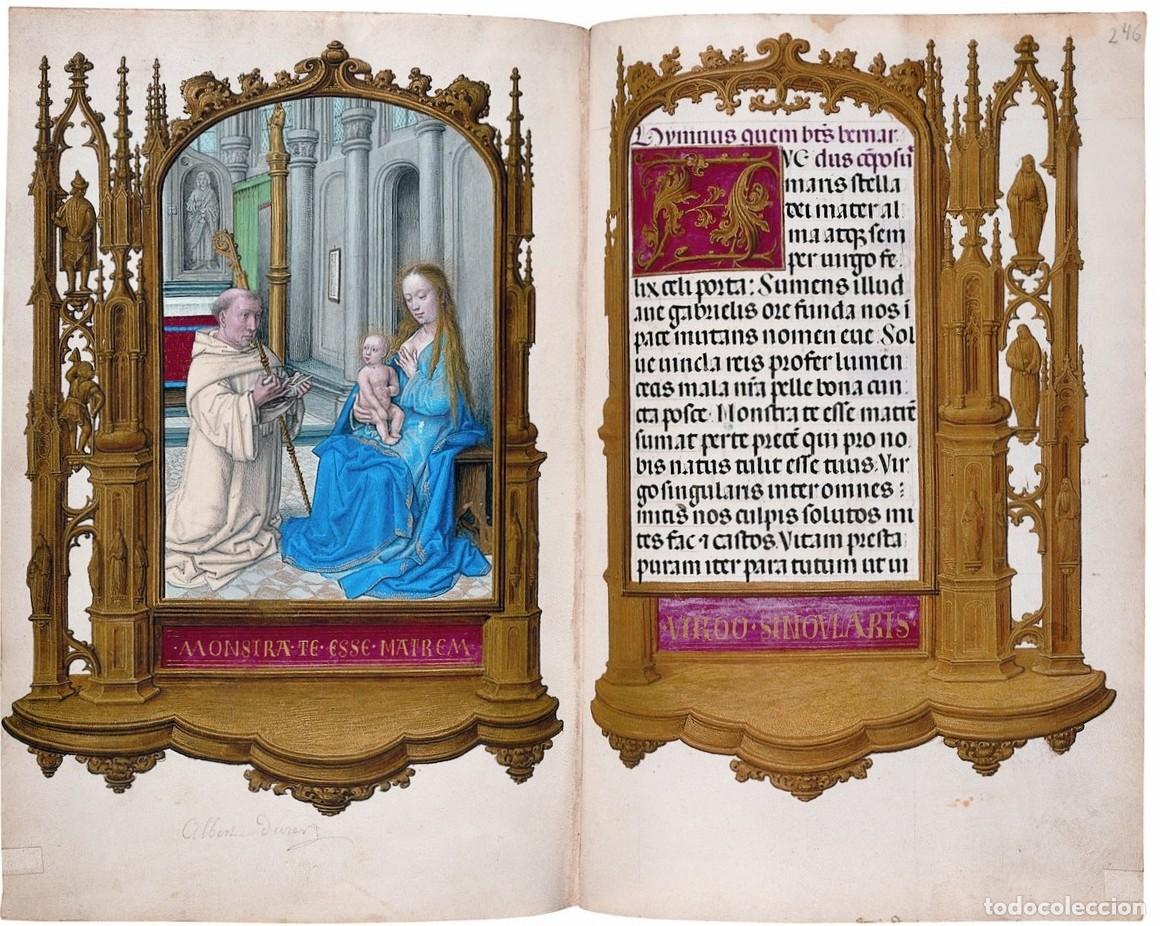 MONSTRA·TE·ESSE·MATREM
Albert Durer
246
Hymnus quem bt̄s bernar
VE dus cōposu̅
maris stella
dei mater al
ma atq̧ sem
per uirgo fe
lix celi porta: Sumens illud
aue gabrielis ore funda nos i
pace mutans nomen eue. Sol
ue uincla reis profer lumen
cecis mala n̄r̄a pelle bona cun
cta posce. Monstra te esse matrē
sumat per te precē qui pro no
bis natus tulit esse tuus. Vir
go singularis inter omnes:
mitis nos culpis solutos mi
tes fac ⁊ castos. Vitam presta
puram iter para tutum ut ui
·VIRGO·SINGVLARIS·
todocoleccion